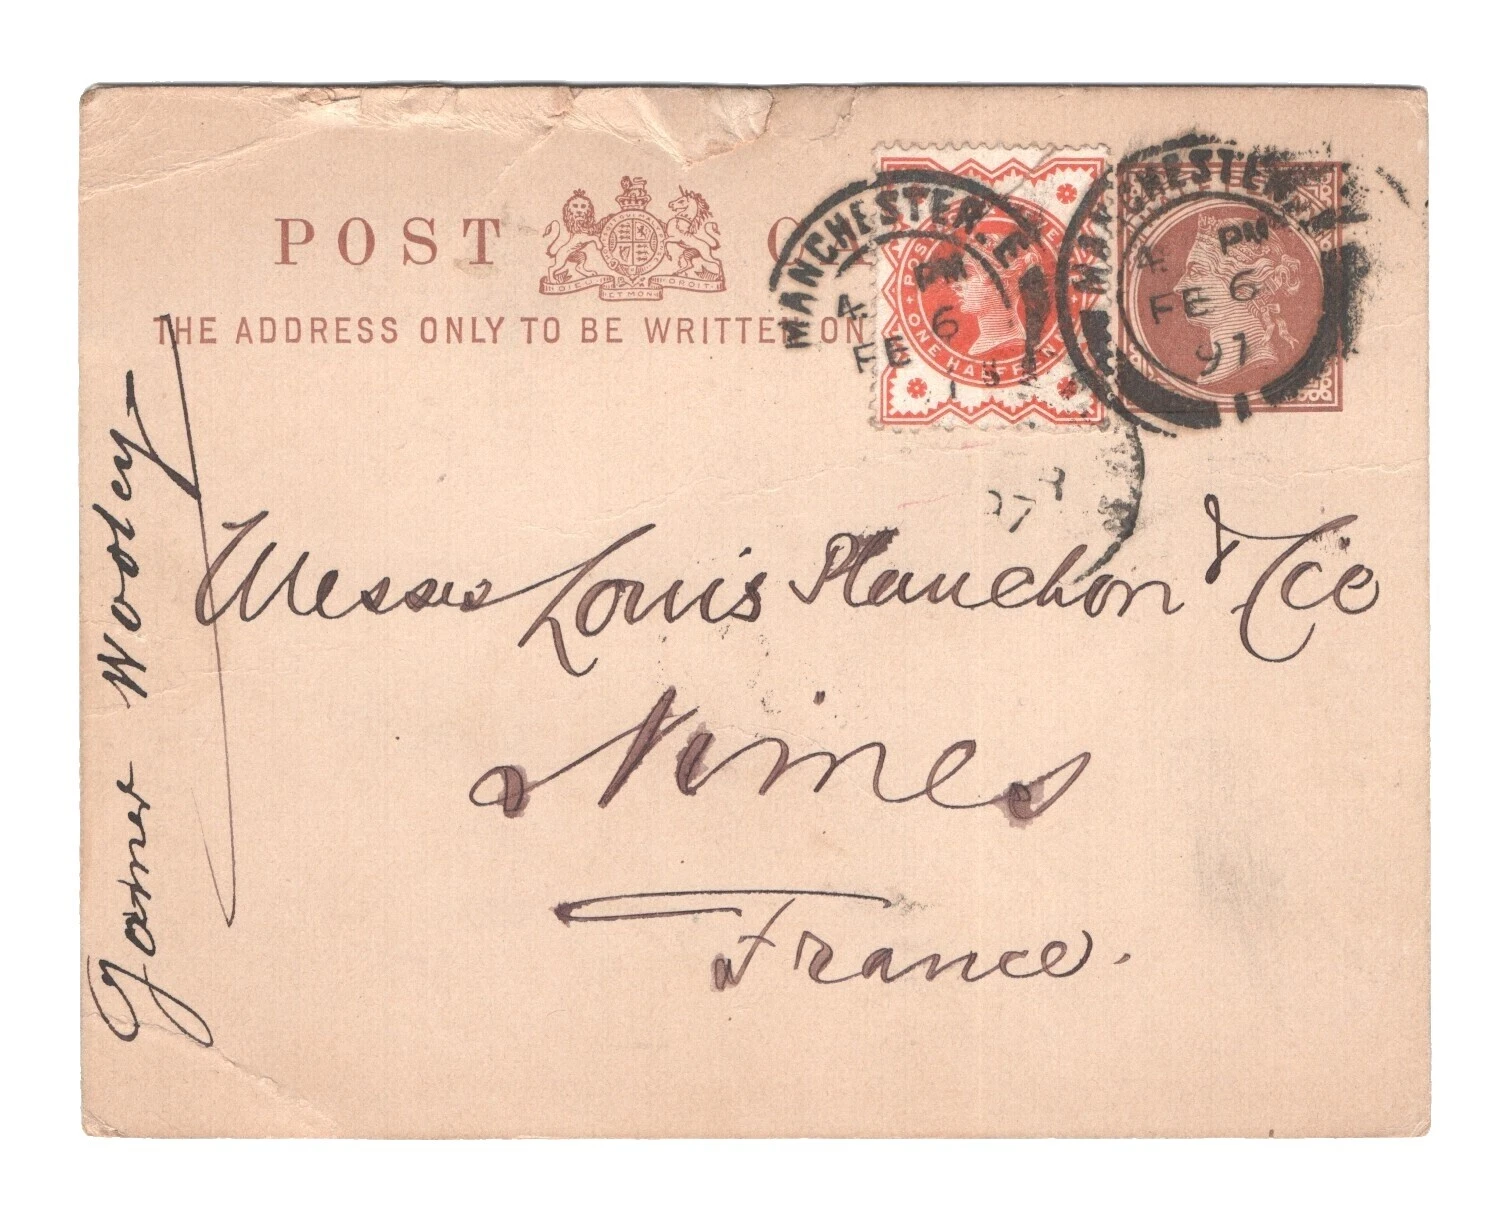 POST
DIEU ET MON DROIT
THE ADDRESS ONLY TO BE WRITTEN ON
MANCHESTER.
4 PM
FE 6
ONE HALFPENNY
MANCHESTER
4 PM
FE 6
97
1
97
Messrs Louis Planchon & Cie
Nimes
France.
Woolley